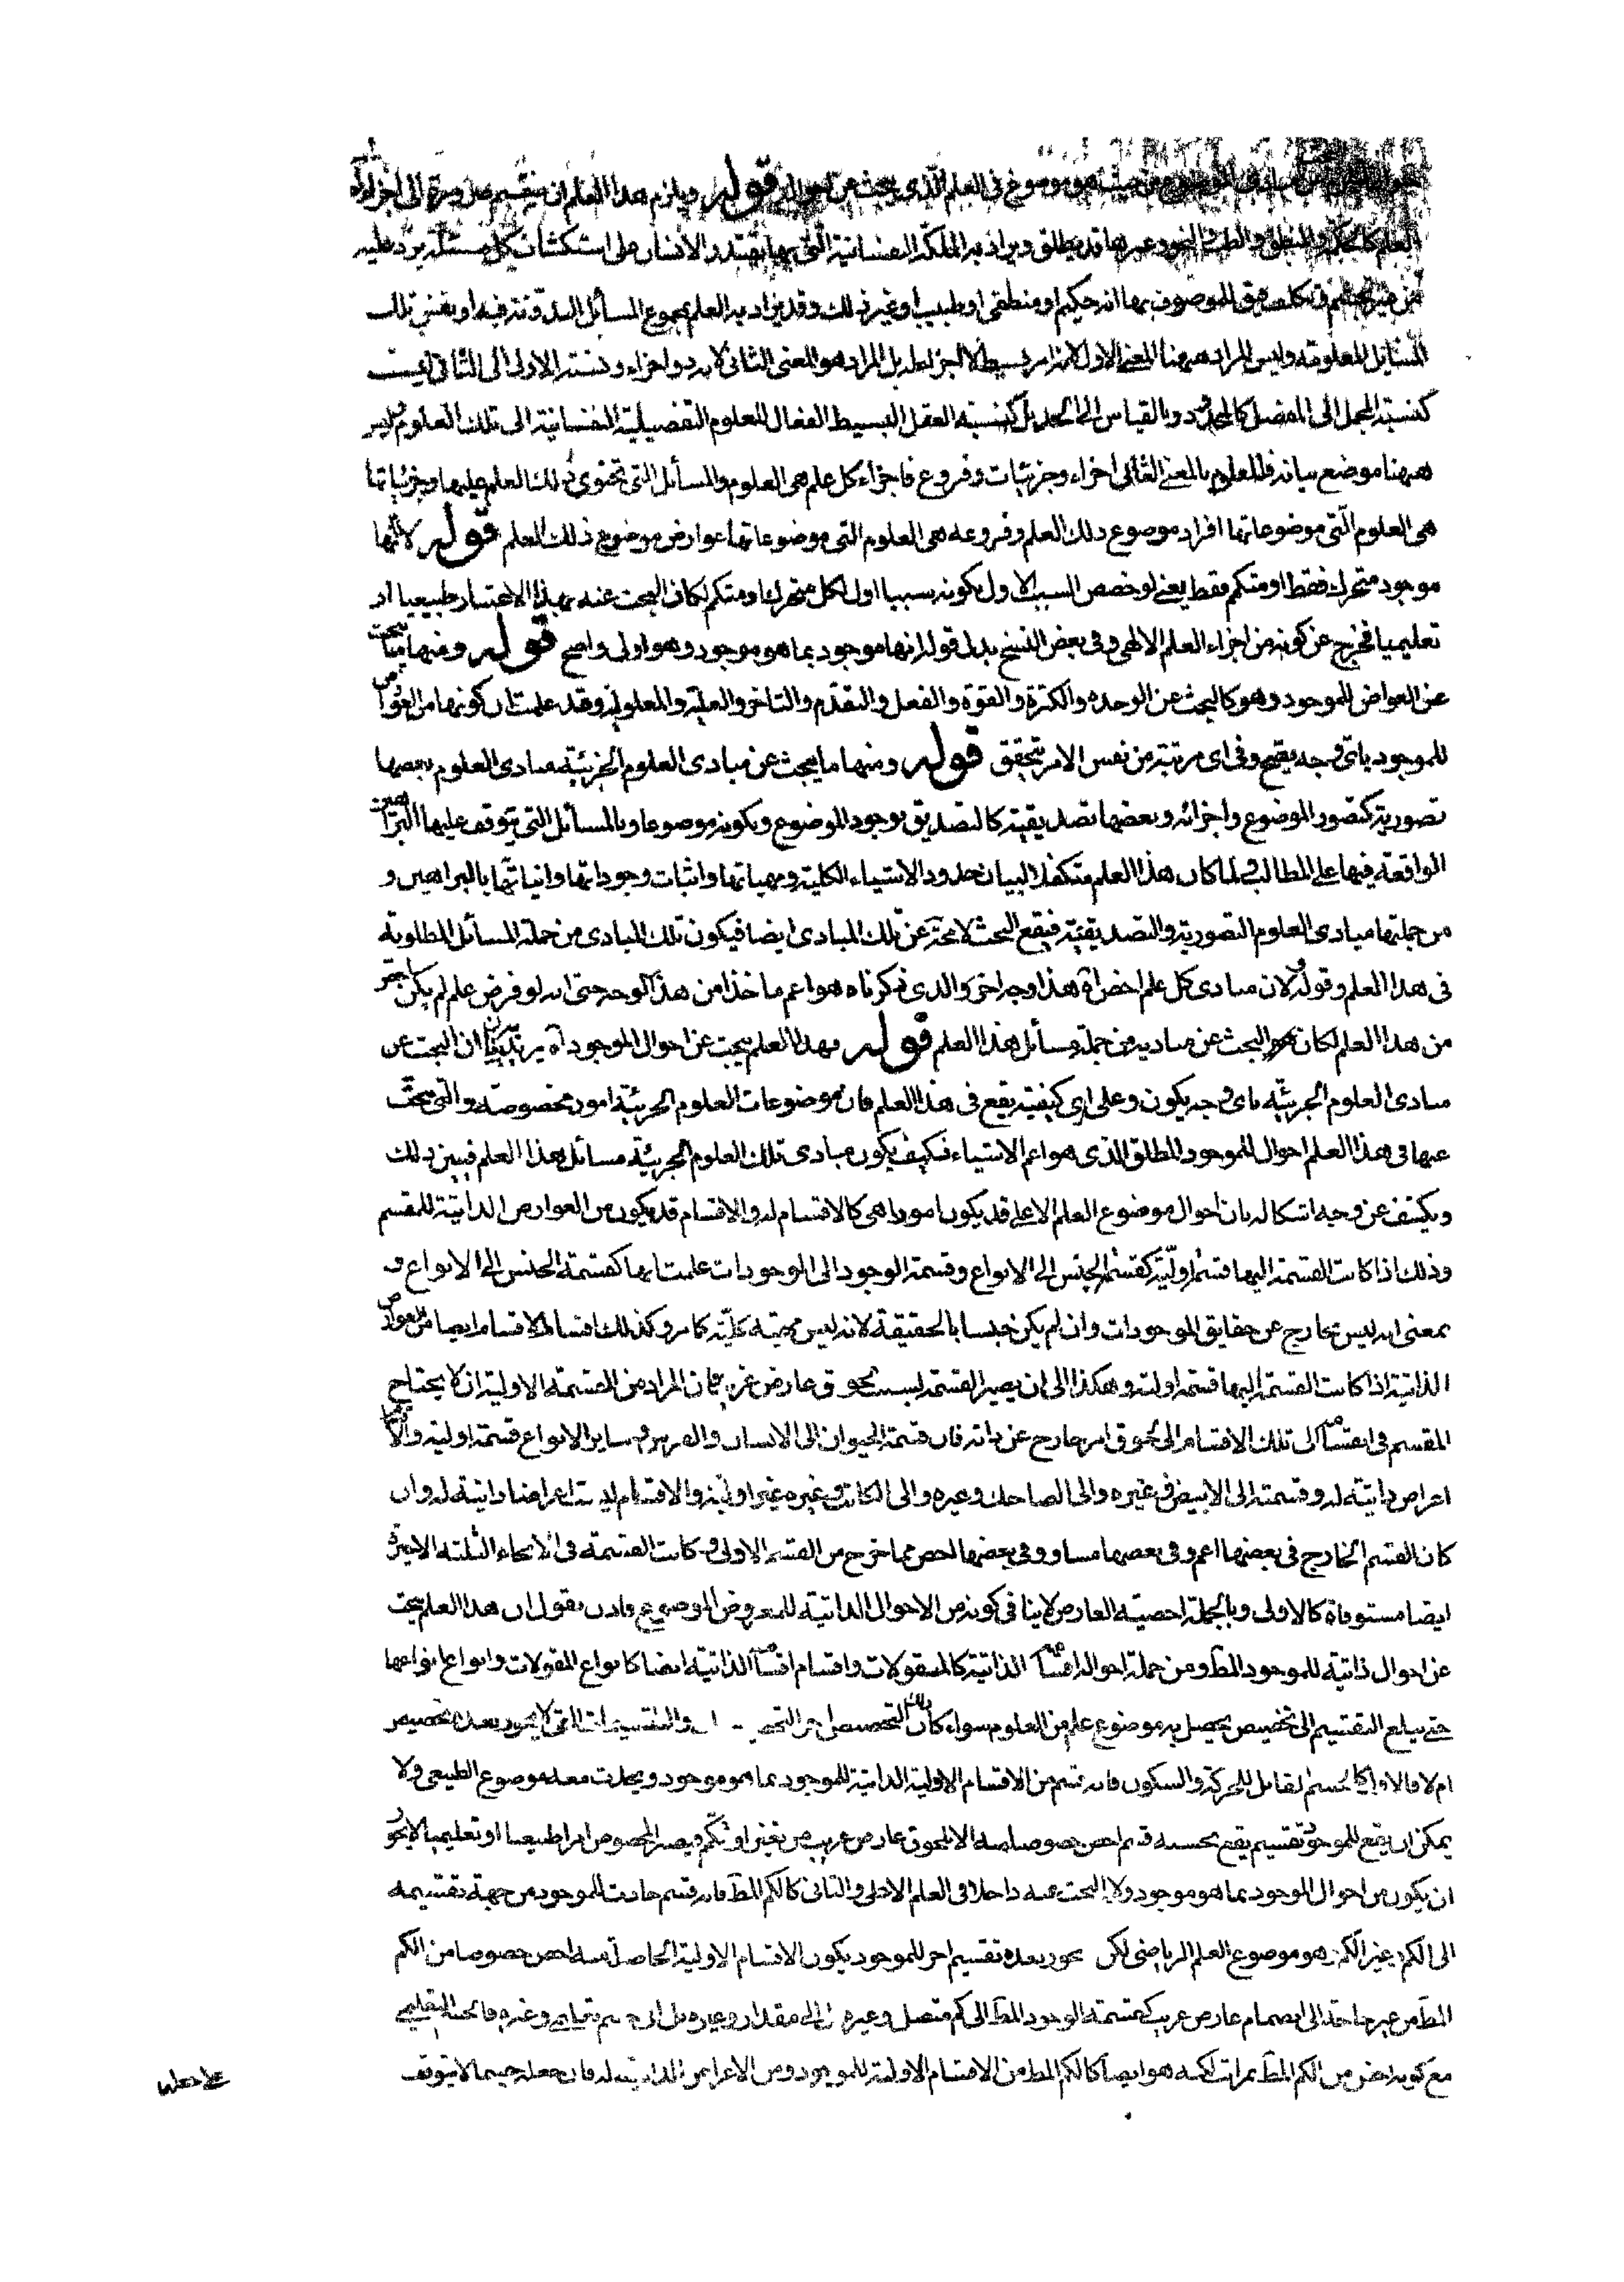 هو موضوع في العلم الذي يبحث عن احواله قوله ويلزم هذا العلم ان ينقسم ضرورة الى اجزاء
العلم كالحكمة والمنطق والطب والنحو وغيرها قد يطلق ويراد به الملكة النفسانية التي بها يقتدر الانسان على استكشاف كل مسئلة يرد عليه
من الموصوف بها انه حكيم او منطقي او طبيب او غير ذلك وقد يراد به العلم بمجموع المسائل المدونة فيه او نفس تلك
المسائل المعلومة وليس المراد ههنا المعنى الاول لانه امر بسيط لا اجزاء له بل المراد هو المعنى الثاني لانه ذو اجزاء ونسبته الاولى الى الثاني ليست
كنسبة المجمل الى المفصل كالمحدود بالقياس الى الحد بل كنسبة العقل البسيط الفعال للعلوم التفصيلية النفسانية الى تلك العلوم وليس
ههنا موضع بيانه فللعلوم بالمعنى الثاني اجزاء وجزئيات وفروع فاجزاء كل علم هي العلوم والمسائل التي تحتوى ذلك العلم عليها وجزئياتها
هي العلوم التي موضوعاتها افراد موضوع ذلك العلم وفروعه هي العلوم التي موضوعاتها عوارض موضوع ذلك العلم قوله لا انها
موجود متحرك فقط او متكمم فقط يعني لو خصص السبب الاول بكونه سببا اول لكل متحرك او متكمم لكان البحث عنه بهذا الاعتبار طبيعيا او
تعليميا فخرج عن كونه من اجزاء العلم الالهي وفي بعض النسخ بدل قوله انها موجود بما هو موجود وهو اولى واصح قوله ومنها ما يبحث
عن العوارض للموجود وهو كالبحث عن الوحدة والكثرة والقوة والفعل والتقدم والتاخر والعلية والمعلولية وقد علمت ان كونها من العوارض
للموجود باي وجه يقع وفي اي مرتبة من نفس الامر يتحقق قوله ومنها ما يبحث عن مبادى العلوم الجزئية مبادى العلوم بعضها
تصورية كتصور الموضوع واجزائه وبعضها تصديقية كالتصديق بوجود الموضوع وبكونه موضوعا وبالمسائل التي يتوقف عليها البراهين
الواقعة فيها على المطالب ولما كان هذا العلم متكفلا لبيان حدود الاشياء الكلية ومهياتها واثبات وجوداتها وانياتها بالبراهين و
من جملتها مبادى العلوم التصورية والتصديقية فيقع البحث لا محة عن تلك المبادى ايضا فيكون تلك المبادى من جملة المسائل المطلوبة
في هذا العلم وقوله ولان مبادى كل علم اخص اه هذا وجه اخر والذى ذكرناه هو اعم ماخذا من هذا الوجه حتى انه لو فرض علم لم يكن اخص
من هذا العلم لكان البحث عن مباديه من جملة مسائل هذا العلم قوله فهذا العلم يبحث عن احوال الموجود اه يريد بيان ان البحث عن
مبادى العلوم الجزئية باى وجه يكون وعلى اى كيفية يقع في هذا العلم فان موضوعات العلوم الجزئية امور مخصوصة والتي يبحث
عنها في هذا العلم احوال للموجود المطلق الذى هو اعم الاشياء فكيف يكون مبادى تلك العلوم الجزئية مسائل هذا العلم فبين ذلك
ويكشف عن وجه اشكاله بان احوال موضوع العلم الاعلى قد يكون امورا هي كالاقسام له والاقسام قد يكون من العوارض الذاتية للمقسم
وذلك اذا كانت القسمة اليها قسمة اولية كقسمة الجنس الى الانواع وقسمة الوجود الى الوجودات علمت انها كقسمة الجنس الى الانواع و
بمعنى انه ليس بخارج عن حقايق الموجودات وان لم يكن جنسا بالحقيقة لانه ليس مهية كلية كما مر وكذلك اقسام الاقسام ايضا من العوارض
الذاتية اذا كانت القسمة اليها قسمة اولية وهكذا الى ان يصير القسمة بسبب لحوق عارض غريب فان المراد من القسمة الاولية ان لا يحتاج
المقسم في انقسامه الى تلك الاقسام الى لحوق امر خارج عن ذاته فان قسمة الحيوان الى الانسان والفرس وساير الانواع قسمة اولية والاقسام
اعراض ذاتية له وقسمته الى الابيض وغيره والى الضاحك وغيره والى الكاتب وغيره غير اولية والاقسام ليست اعراضا ذاتية له وان
كان القسم الخارج في بعضها اعم وفي بعضها مساو وفي بعضها اخص مما خرج من القسمة الاولى و كانت القسمة في الانحاء الثلثة الاخيرة
ايضا مستوفاة كالاولى وبالجملة اخصية العارض لا ينافي كونه من الاحوال الذاتية للمعروض الموضوع فاذن نقول ان هذا العلم يبحث
عن احوال ذاتية للموجود المط ومن جملة احواله اقسامه الذاتية كالمقولات واقسام اقسامه الذاتية ايضا كانواع المقولات وانواع انواعها
حتى يبلغ التقسيم الى تخصيص يحصل به موضوع علم من العلوم سواء كان ذلك التخصيص والتقسيمات التي لا يجوز بعده تخصيص
ام لا فالاول كالجسم القابل للحركة والسكون فانه قسم من الاقسام الاولية الذاتية للموجود بما هو موجود ويحدث معه موضوع الطبيعي ولا
يمكن ان يقع للموجود تقسيم يقع بحسبه قسم اخص خصوصا منه الا بلحوق عارض غريب من تغير او تكمم فيصير المخصوص امرا طبيعيا او تعليميا لا يجوز
ان يكون من احوال الموجود بما هو موجود ولا البحث عنه داخلا في العلم الاعلى والثاني كالكم المط فانه قسم حادث للموجود من جهة تقسيمه
الى الكم وغير الكم هو موضوع العلم الرياضي لكن يجوز بعده تقسيم اخر للموجود يكون الاقسام الاولية الحاصلة منه اخص خصوصا من الكم
المط من غير حاجة الى انضمام عارض غريب كقسمة الوجود المط الى كم متصل وغيره الى مقدار وغيره بل الى جسم تعليمي وغيره فالجسم التعليمي
مع كونه اخص من الكم المط بمراتب لكنه هو ايضا كالكم المط من الاقسام الاولية للموجود ومن الاعراض الذاتية له فان جعله جسما لا يتوقف